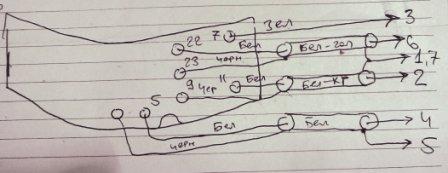 7 Зел 3
22 Бел Бел-гол 6
23 черн 1,7
9 чер 11 Бел Бел-кр 2
5 Бел Бел 4
черн 5